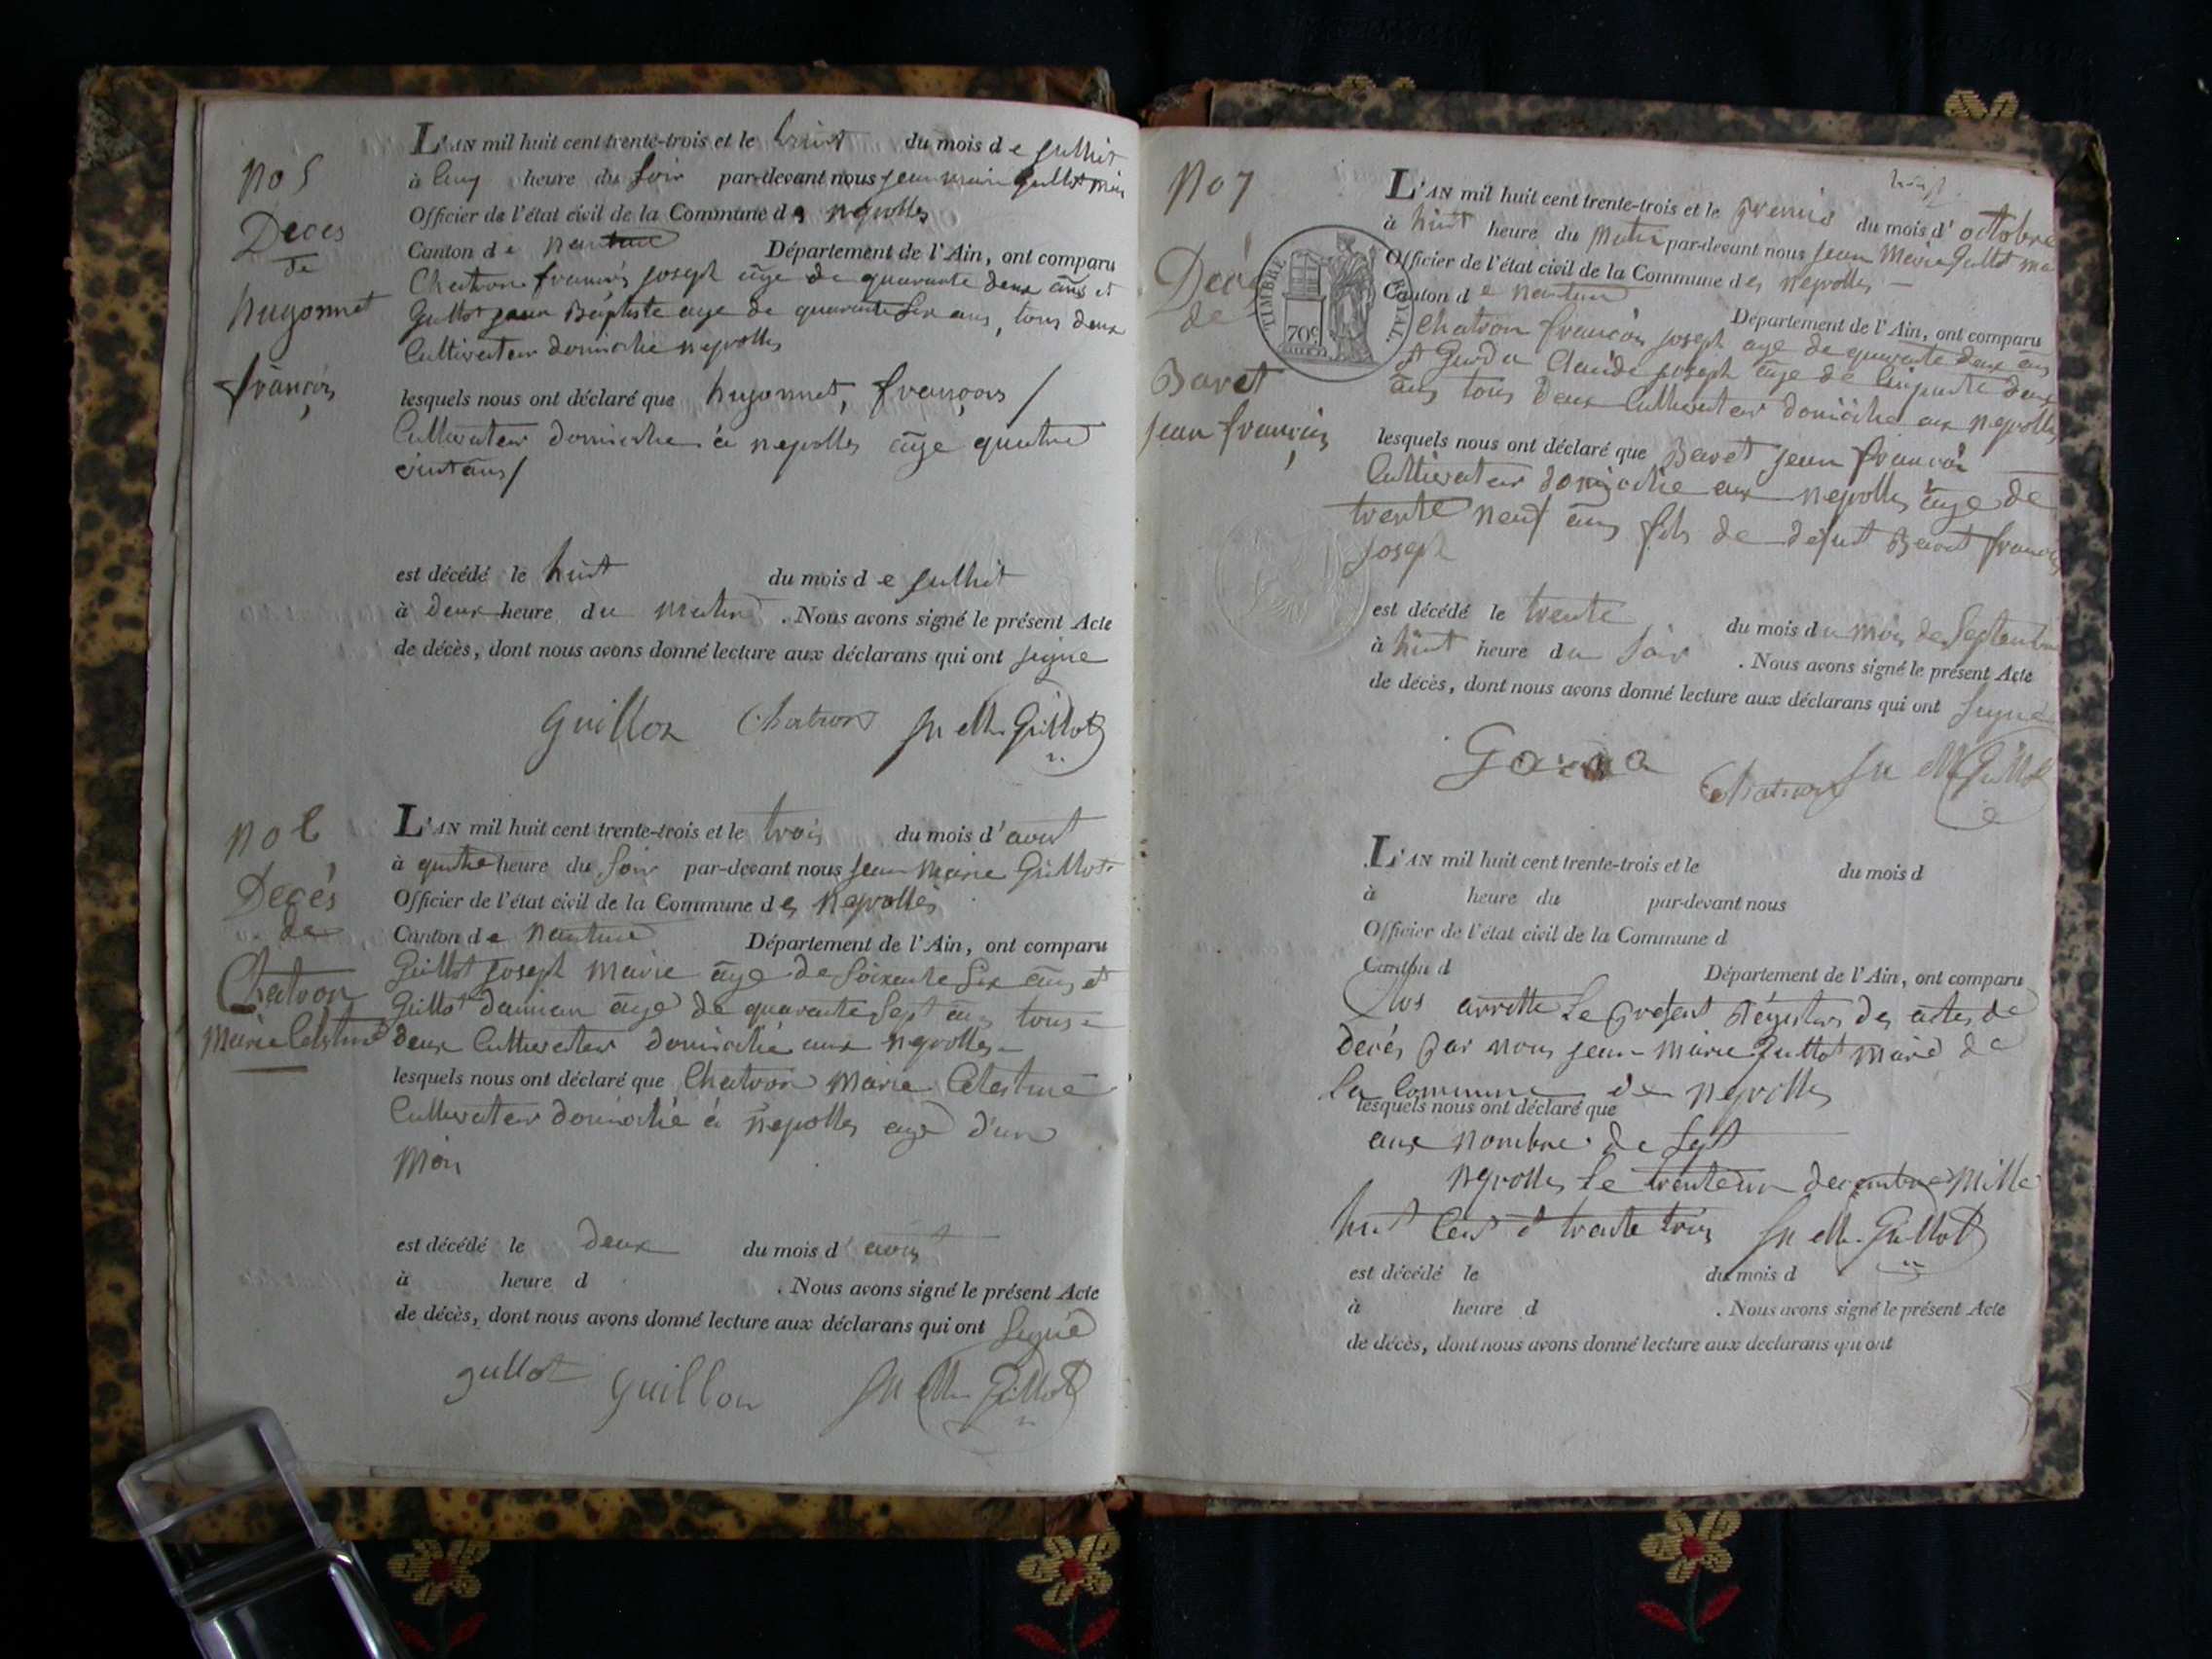 no 5
Deces
de
hugonnet
françois
L'AN mil huit cent trente-trois et le huit du mois de juillet
à cinq heure du soir par-devant nous jean marie guillot maire
Officier de l'état civil de la Commune des neyrolles
Canton de nantua Département de l'Ain, ont comparu
Chatron françois joseph âge de quarante deux ans et
guillot jean Baptiste age de quarante six ans, tous deux
Cultivateur domicilie neyrolles
lesquels nous ont déclaré que hugonnet, françois /
Cultivateur domicilie à neyrolles âge quatre
vint ans /
est décédé le huit du mois de juillet
à deux heure du matin . Nous avons signé le présent Acte
de décès, dont nous avons donné lecture aux déclarans qui ont signé
Guillot Chatron Jn Mie Guillot
no 6
Decés
de
Chatron
Marie Celestine
L'AN mil huit cent trente-trois et le trois du mois d'aout
à quatre heure du soir par-devant nous jean marie Guillot
Officier de l'état civil de la Commune des neyrolles
Canton de nantua Département de l'Ain, ont comparu
Guillot joseph marie âge de soixante six ans et
Guillot damian âge de quarante sept ans tous
deux Cultivateur domicilié aux neyrolles
lesquels nous ont déclaré que Chatron Marie Celestine
Cultivateur domicilié à neyrolles age d'un
mois
est décédé le deux du mois d'aout
à heure d . Nous avons signé le présent Acte
de décès, dont nous avons donné lecture aux déclarans qui ont signé
guillot Jn Mie Guillot
no 7
Decés
de
Baret
jean françois
TIMBRE ROYAL
70c
huit
L'AN mil huit cent trente-trois et le premié du mois d'octobre
à huit heure du matin par-devant nous jean Marie Guillot
Officier de l'état civil de la Commune des neyrolles
Canton de nantua Département de l'Ain, ont comparu
Chatron françois joseph age de quarante deux ans
et Claude joseph âge de cinquante deux
ans tous deux Cultivateur domicilie aux neyrolles
lesquels nous ont déclaré que Baret jean françois
Cultivateur domicilie aux neyrolles âge de
trente neuf ans fils de défunt Baret françois
joseph
est décédé le trente du mois du mois de septembre
à huit heure du soir . Nous avons signé le présent Acte
de décès, dont nous avons donné lecture aux déclarans qui ont signé
Chatron Jn M Guillot
L'AN mil huit cent trente-trois et le du mois d
à heure du par-devant nous
Officier de l'état civil de la Commune d
Canton d Département de l'Ain, ont comparu
Clos arrette Le present Régistre des actes de
decés par nous jean-marie Guillot maire de
la Commune des neyrolles
lesquels nous ont déclaré que
aux nombre de sept
neyrolles le trente un decembre Mille
huit Cent et trente trois Jn Mie Guillot
est décédé le du mois d
à heure d . Nous avons signé le présent Acte
de décès, dont nous avons donné lecture aux déclarans qui ont